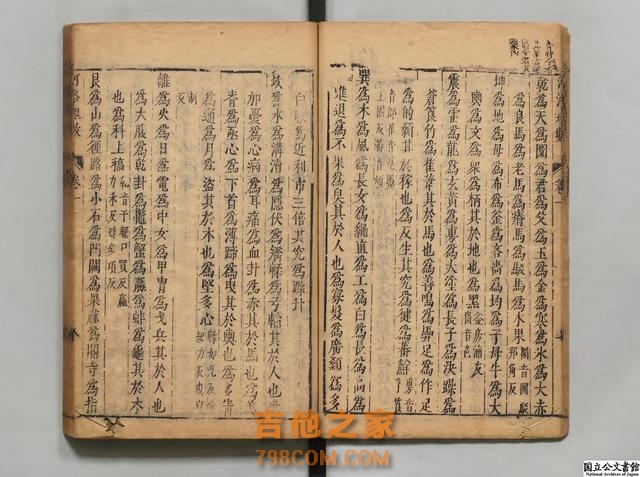 乾爲天爲圜爲君爲父爲玉爲金爲寒爲冰爲大赤
爲良馬爲老馬爲瘠馬爲駁馬爲木果 圜音圓駁邦角反
坤爲地爲母爲布爲釜爲吝嗇爲均爲子母牛爲大
輿爲文爲衆爲柄其於地也爲黑 釜房浦反嗇音色
震爲雷爲龍爲玄黃爲旉爲大塗爲長子爲決躁爲
蒼筤竹爲萑葦其於馬也爲善鳴爲馵足爲作足
爲的顙其於稼也爲反生其究爲健爲蕃鮮 旉音
巽爲木爲風爲長女爲繩直爲工爲白爲長爲高爲
進退爲不果爲臭其於人也爲寡髮爲廣顙爲多
白眼爲近利市三倍其究爲躁卦
坎爲水爲溝瀆爲隱伏爲矯輮爲弓輪其於人也爲
加憂爲心病爲耳痛爲血卦爲赤其於馬也爲美
脊爲亟心爲下首爲薄蹄爲曳其於輿也爲多眚
爲通爲月爲盜其於木也爲堅多心
離爲火爲日爲電爲中女爲甲冑爲戈兵其於人也
爲大腹爲乾卦爲鼈爲蟹爲蠃爲蚌爲龜其於木
也爲科上槁
艮爲山爲徑路爲小石爲門闕爲果蓏爲閽寺爲指
卷一
吉他之家
798COM.COM
国立公文書館
National Archives of Japan